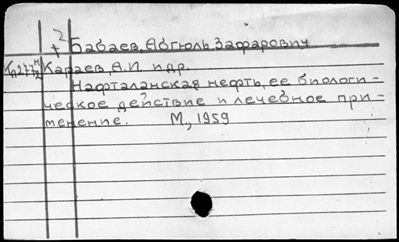 2
+ Бабаев, Абгюль Зафарович
Караев, А.И. и др.
Нафталанская нефть, ее биологи-
ческое действие и лечебное при-
менение. М., 1959